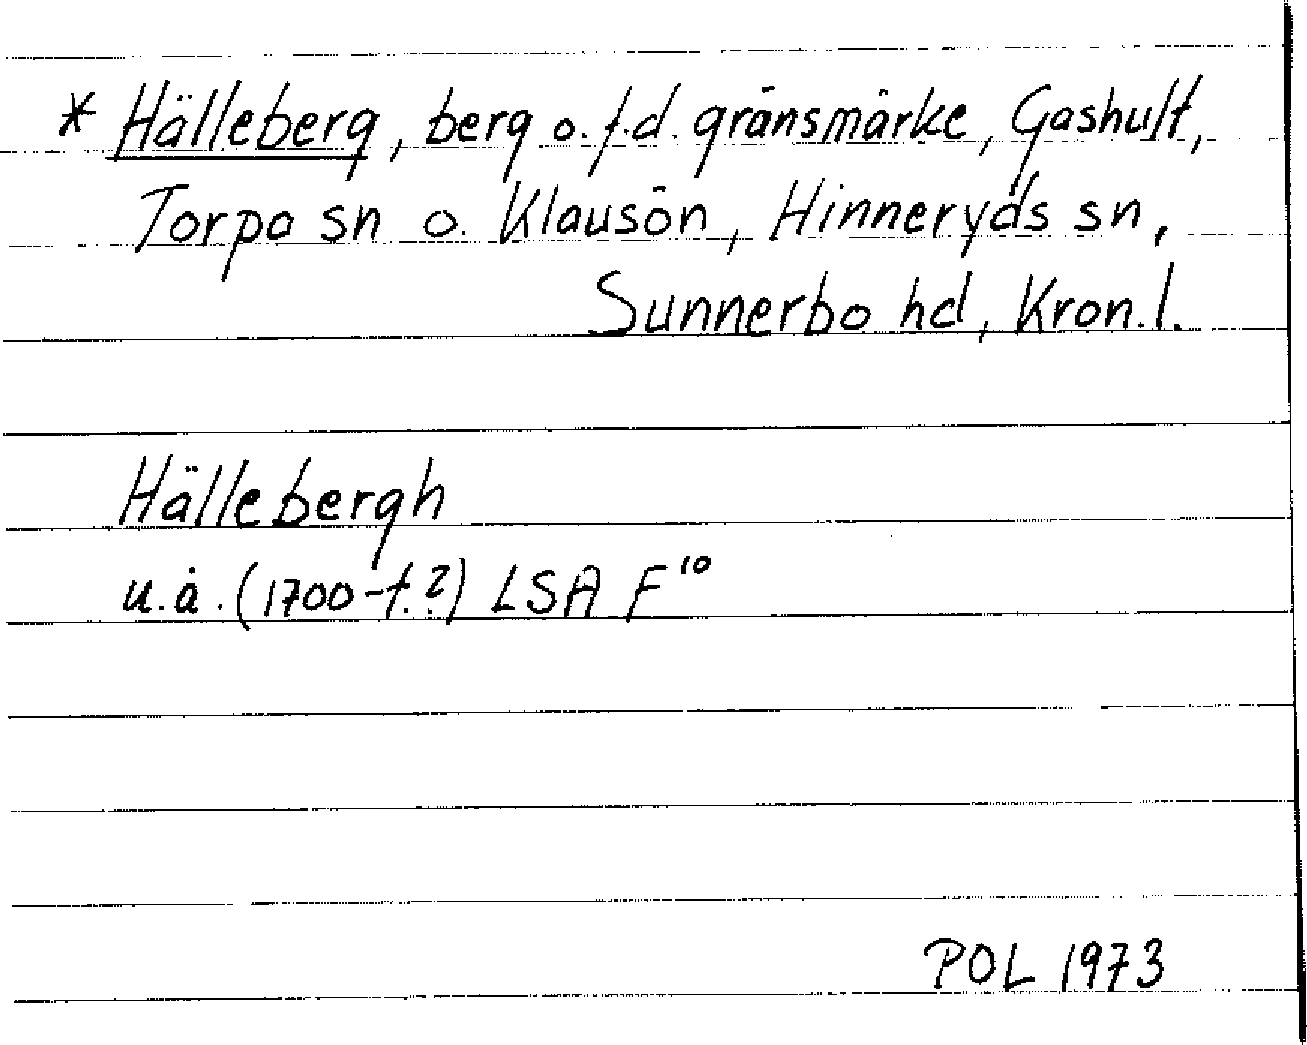 * Hälleberg, berg o. f.d. gränsmärke, Gashult,
Torpa sn o. Klausön, Hinneryds sn,
Sunnerbo hd, Kron. l.
Hällebergh
u.å. (1700-t.?) LSA F¹⁰
POL 1973